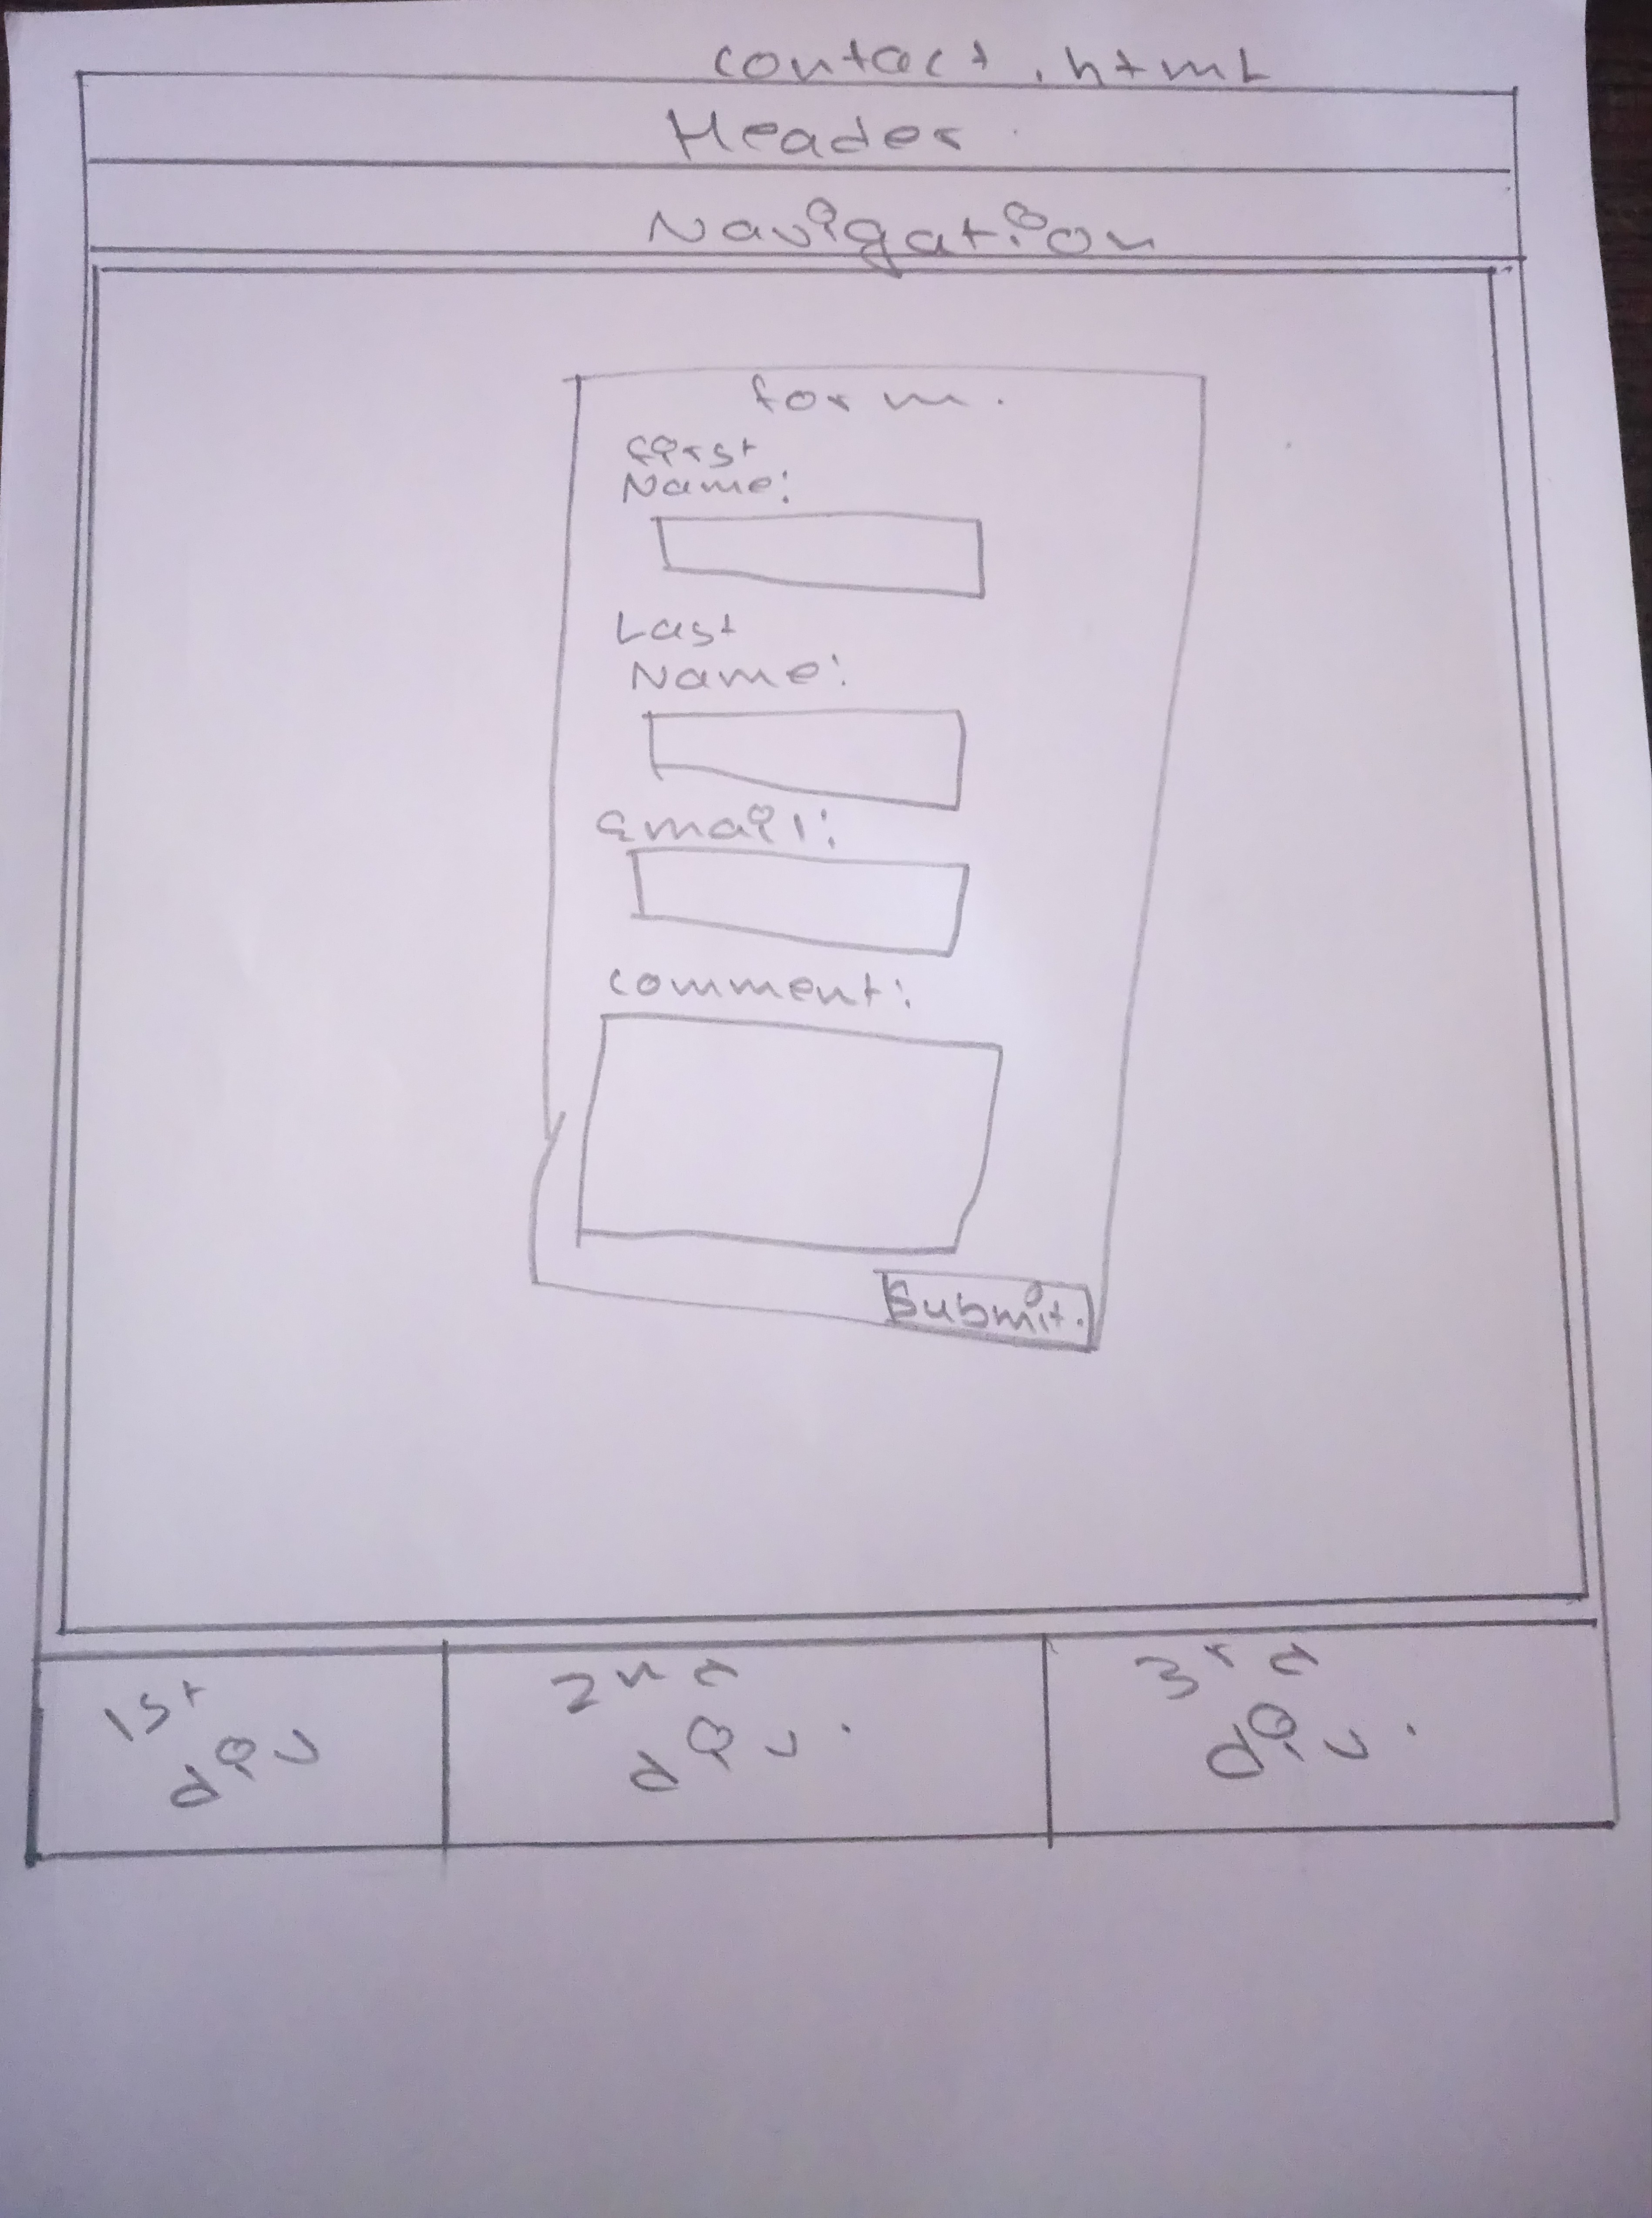 contact.html
Header
Navigation
form.
first
Name:
Last
Name:
Email:
comment:
Submit.
1st
div
2nd
div.
3rd
div.